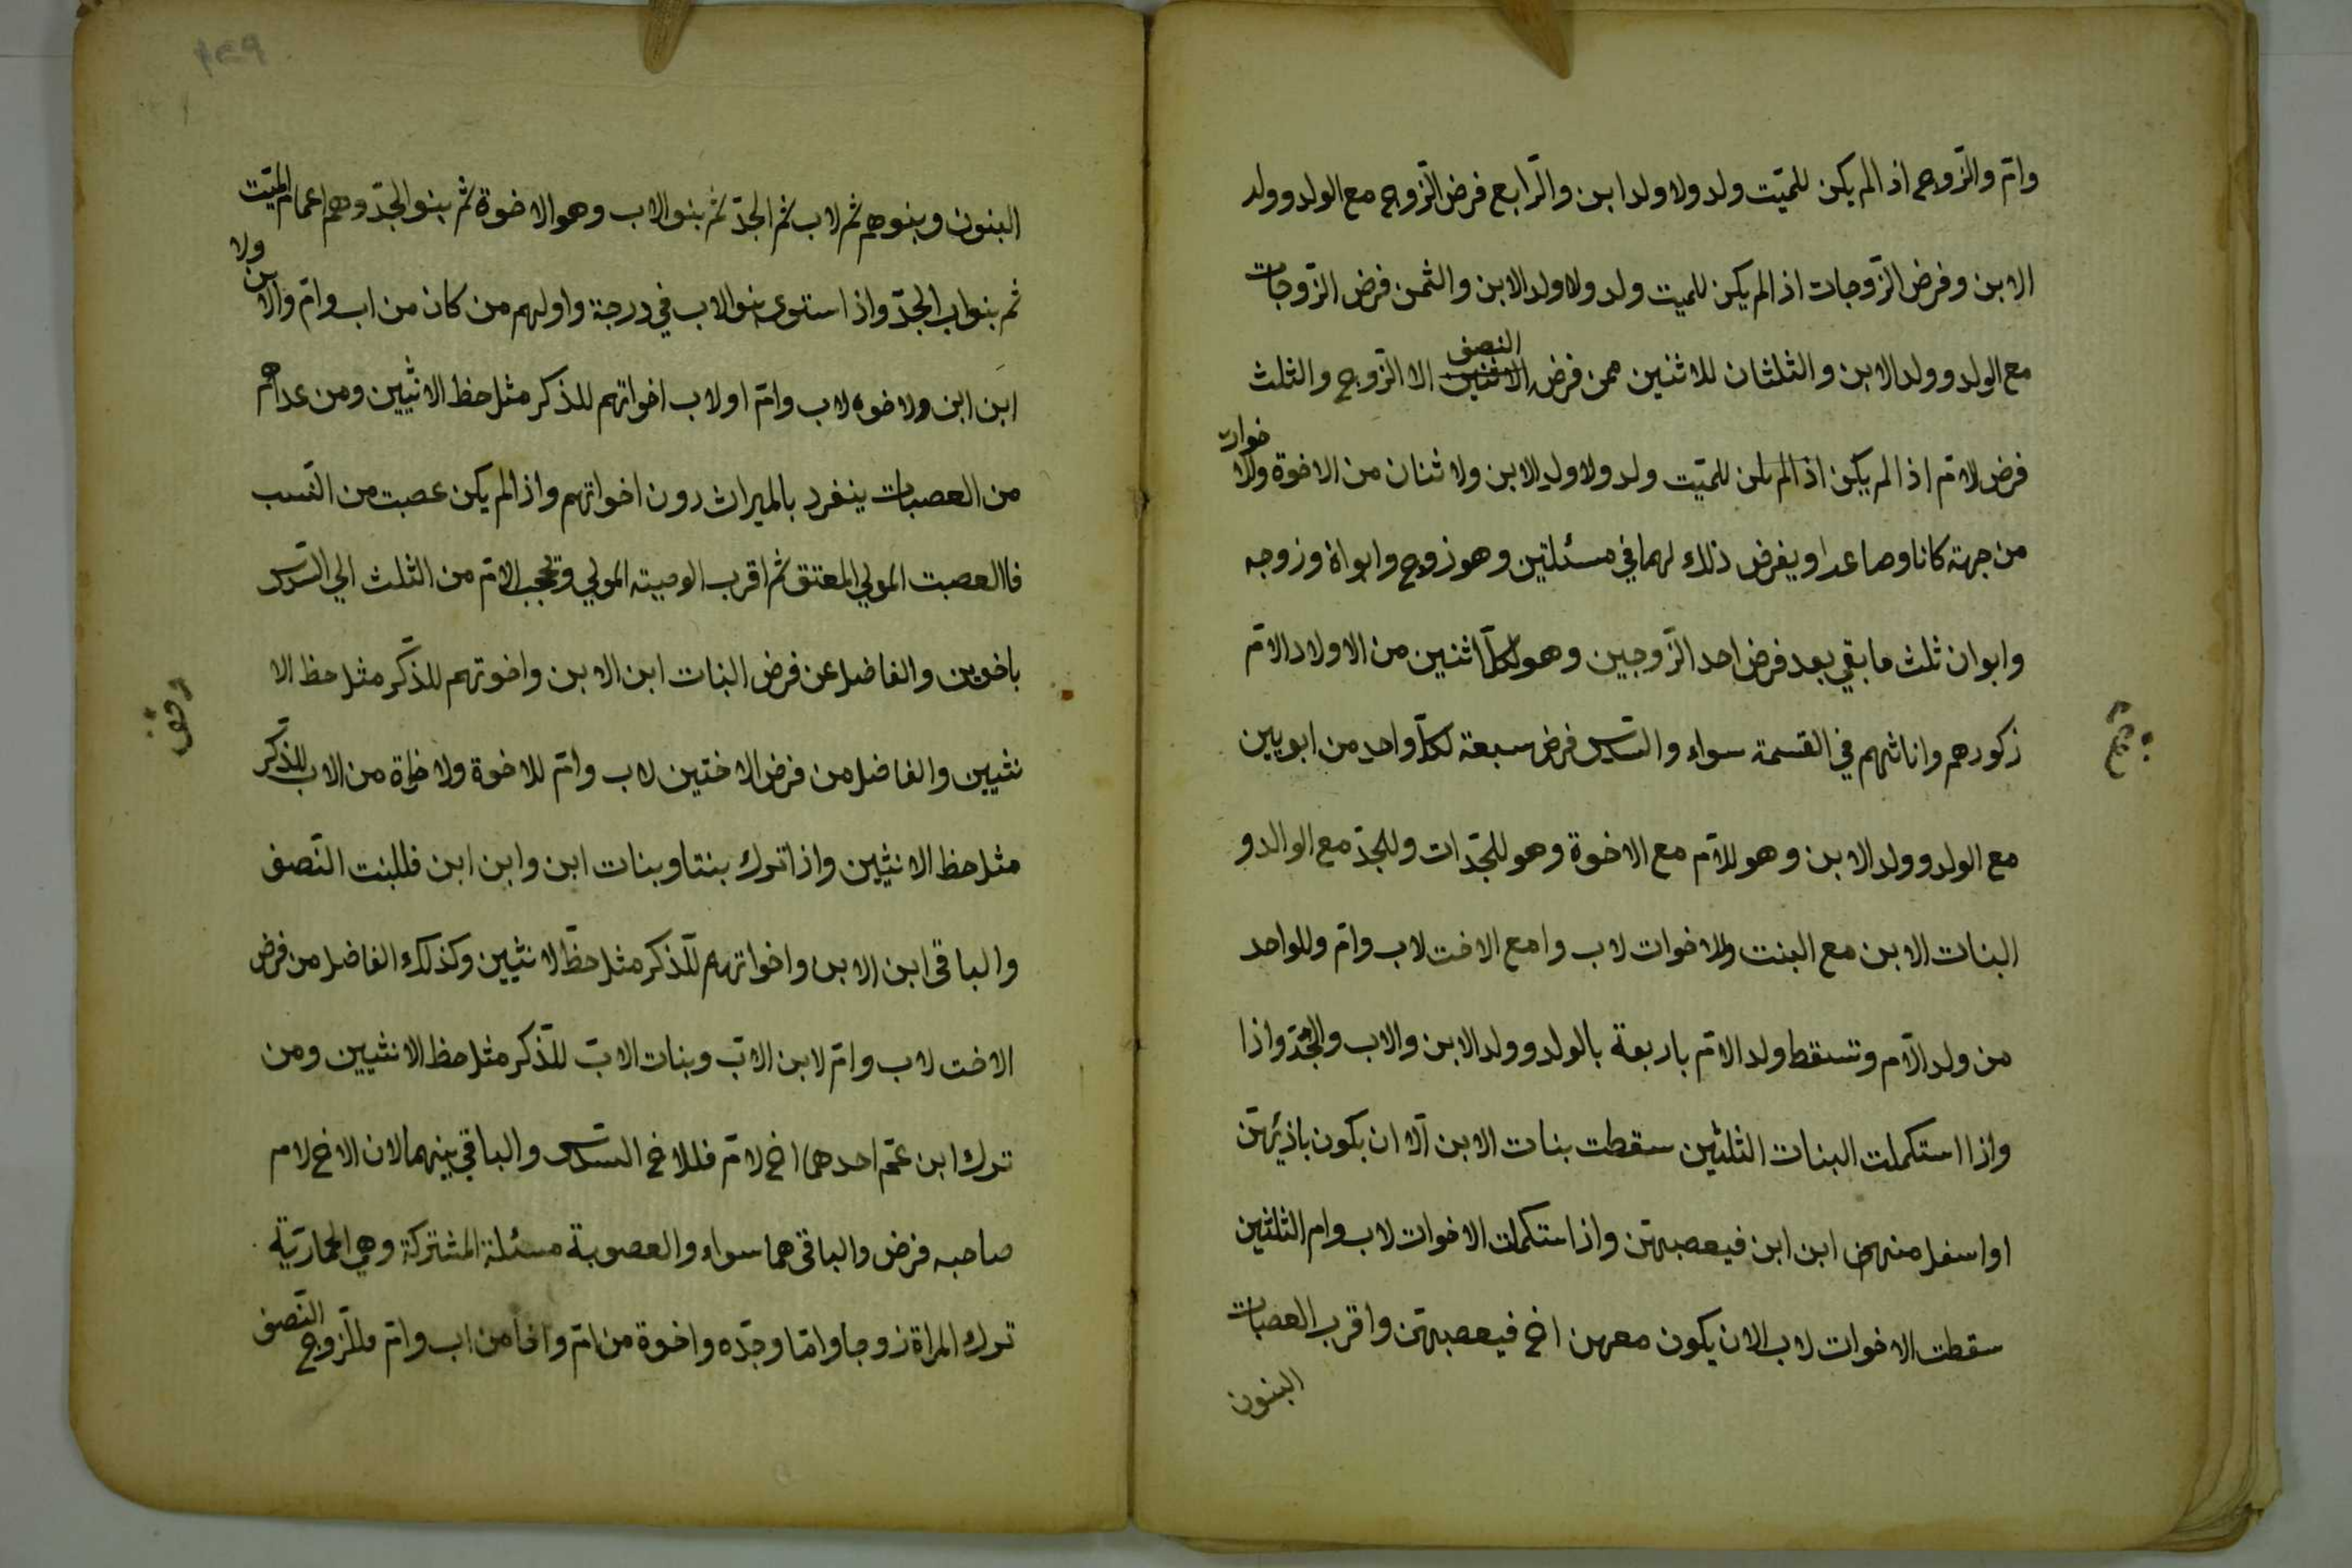 وامّ والزّوج اذالم يكن للميّت ولد ولا ولد ابن والرّابع فرض الزّوج مع الولد وولد
الابن وفرض الزّوجات اذالم يكن للميت ولد ولا ولد الابن والثمن فرض الزّوجات
النصف
مع الولد وولد الابن والثلثان للاثنين ممن فرضه الاثنين الا الزّوج والثلث
خوات
فرض لامّ اذالم يكن اذالم يكن للميّت ولد ولا ولد الابن ولا ثنان من الاخوة والا
من جهة كانا وصاعدا ويفرض ذلك لهما في مسئلتين وهو زوج وابواة وزوجه
وابوان ثلث ما بقي بعد فرض احد الزّوجين وهو لكلّ اثنين من الاولاد الامّ
زكورهم واناثهم في القسمة سواء والسّدس فرض سبعة لكلّ واحد من ابويين
مع الولد وولد الابن وهو للامّ مع الاخوة وهو للجّدات وللجدّ مع الوالد و
البنات الابن مع البنت وللاخوات لاب وامع الاخت لاب وامّ وللواحد
من ولد الامّ وتسقط ولد الامّ باربعة بالولد وولد الابن والاب والجدّ واذا
واذا استكملت البنات الثلثين سقطت بنات الابن الّا ان يكون باذيئهنّ
اواسفل منهن ابن ابن فيعصبهنّ واذاستكملت الاخوات لاب وام الثلثين
سقطت الاخوات لاب الان يكون معهن اخ فيعصبهنّ واقرب العصبات
البنون
البنون وبنوهم ثم لاب ثم الجدّ ثم بنوالاب وهو الاخوة ثم بنوالجدّ وهم اعمام الميّت
ولا
ثم بنواب الجدّ واذا استوى بنوالاب في درجة واولهم من كان من اب وامّ والابن
ابن ابن ولاخوه لاب وامّ اولاب اخواتهم للذكر مثل حظ الانثيين ومن عداهم
من العصبات ينفرد بالميراث دون اخواتهم واذالم يكن عصبت من النّسب
فاالعصبت المولي المعتق ثم اقرب الوصيته المولي وتحجب الامّ من الثلث الي السّدس
باخوين والفاضل عن فرض البنات ابن الابن واخوتهم للذّكر مثل حظ الا
نثيين والفاضل من فرض الاختين لاب وامّ للاخوة ولاخواة من الاب للذّكر
وقف
مثل حظ الانثيين واذاترك بنتا وبنات ابن وابن ابن فللبنت النّصف
والباقى ابن الابن واخواتهم للّذكر مثل حظّ الانثيين وكذلك الفاضل من فرض
الاخت لاب وامّ لابن الابّ وبنات الابّ للّذكر مثل حظ الانثيين ومن
ترك ابن عمّ احدهما اخ لامّ فللاخ السّدس والباقي بينهما لان الاخ لام
صاحبه فرض والباقى هما سواء والعصوبة مسئلة المشتركة وهي الحمّاريّة
ترك المراة زوجا وامّا وجدّه واخوة من امّ واخا من اب وامّ فللّزوج النّصف